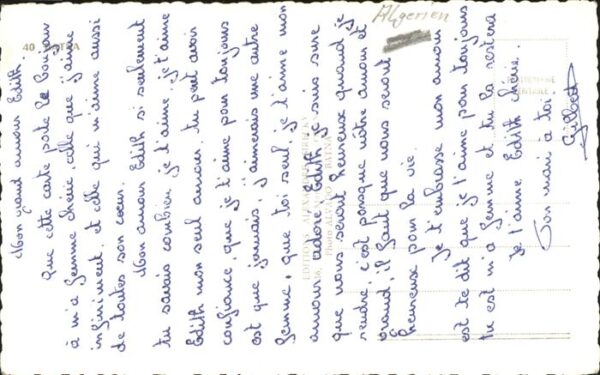 Mon grand amour Edith.
Que cette carte porte le bonjour
à m'a femme chérie, celle que j'aime
infiniment, et celle qui m'aime aussi
de toutes son coeur.
Mon amour Edith si seulement
tu savais combien je t'aime, je t'aime
Edith mon seul amour, tu peut avoir
confiance, que je t'aime pour toujours
est que jamais, j'aimerais une autre
femme, que toi seul, je t'aime mon
amour adoré Edith, je suis sure
que nous seront heureux quand je
rendre, c'est parsque nôtre amour est
grand, il faut que nous seront
heureux pour la vie.
Je t'embrasse mon amour
est te dit que je t'aime pour toujours
tu est m'a femme et tu la restera
Je t'aime Edith chérie.
Ton mari a toi.
Gilbert
Algerien
40
EDITIONS